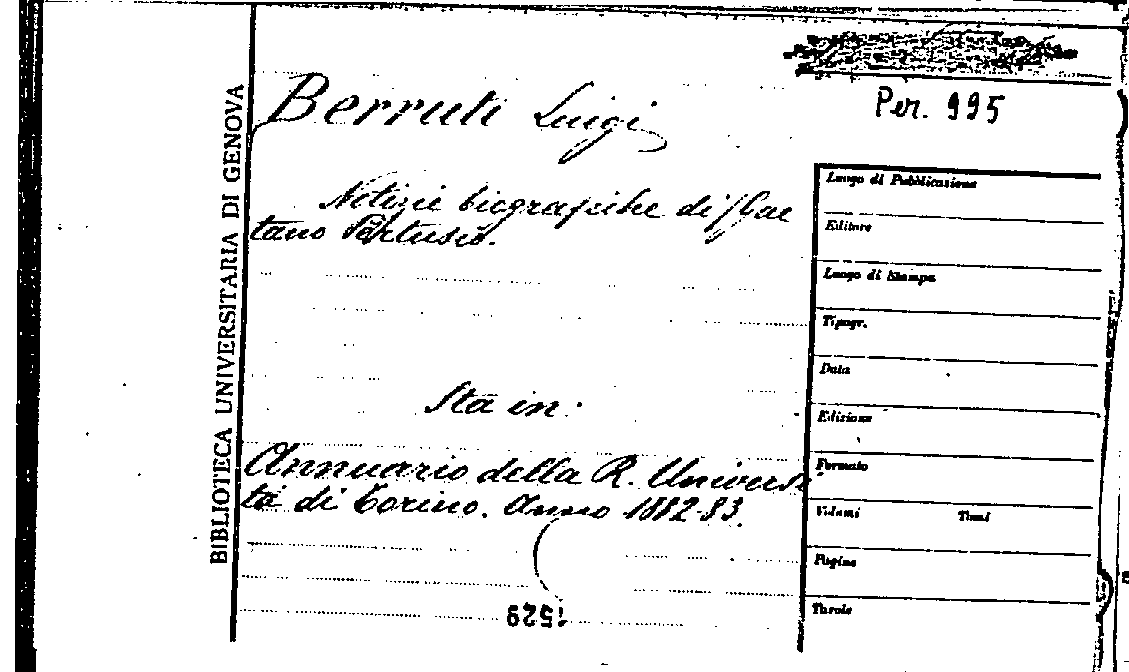 BIBLIOTECA UNIVERSITARIA DI GENOVA
Per. 995
Berruti Luigi
Notizie biografiche di Gae
tano Pertusio.
Sta in:
Annuario della R. Universi
tà di Torino. Anno 1882-83.
1529
Luogo di Pubblicazione
Editore
Luogo di Stampa
Tipogr.
Data
Edizione
Formato
Volumi Tomi
Pagine
Tavole